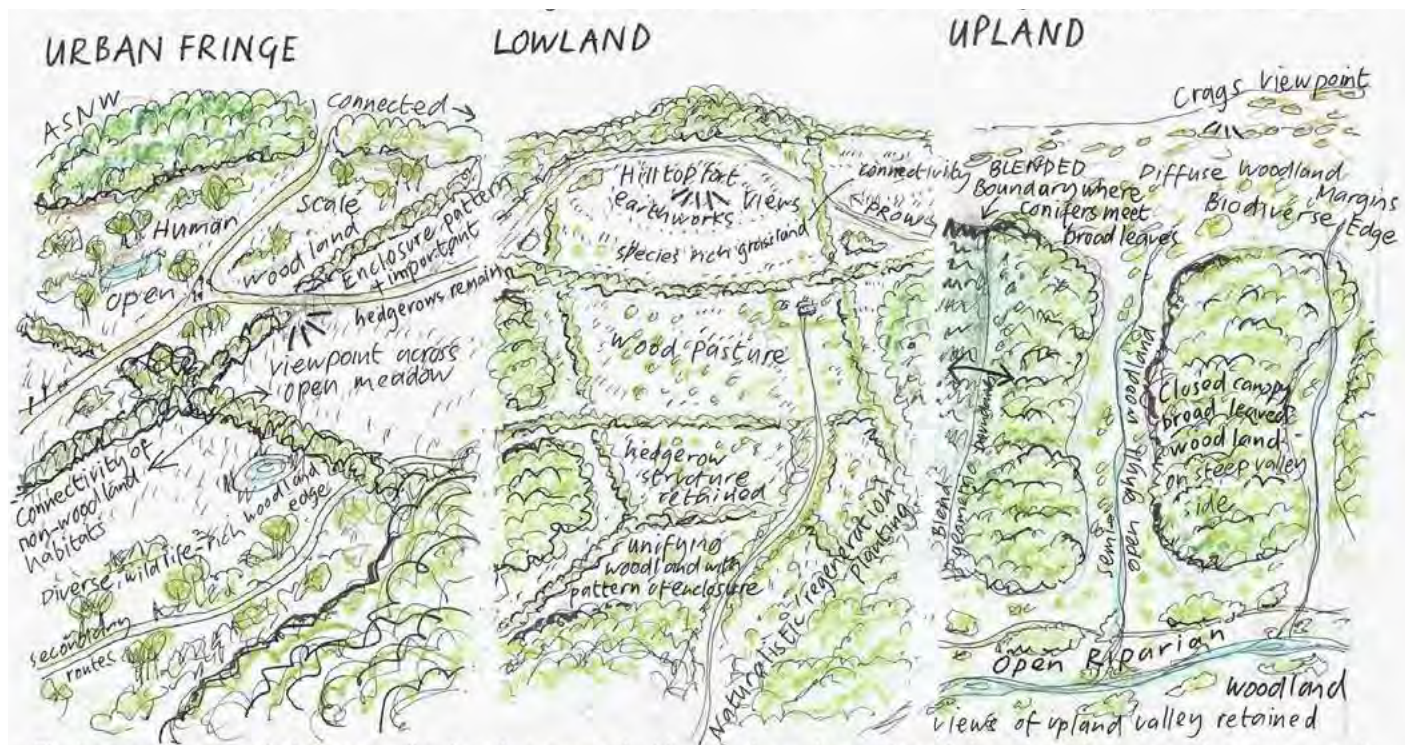 URBAN FRINGE
ASNW
Connected
Human
Scale
woodland
Open
Enclosure pattern
+ important
hedgerows remain
viewpoint across
open meadow
Connectivity of
non-woodland
habitats
Diverse, wildlife-rich woodland
edge
secondary
routes
LOWLAND
Hilltop fort
earthworks
Views
species rich grassland
connectivity
PROWS
Wood pasture
hedgerow
structure
retained
unifying
woodland with
pattern of enclosure
Naturalistic regeneration
planting
UPLAND
Crags viewpoint
BLENDED
Boundary where
conifers meet
broad leaves
Diffuse Woodland
Margins
Biodiverse Edge
Blend
geometric boundaries
semi open ghyll woodland
Closed canopy
broad leaved
woodland
on steep valley
side
Open Riparian
woodland
views of upland valley retained